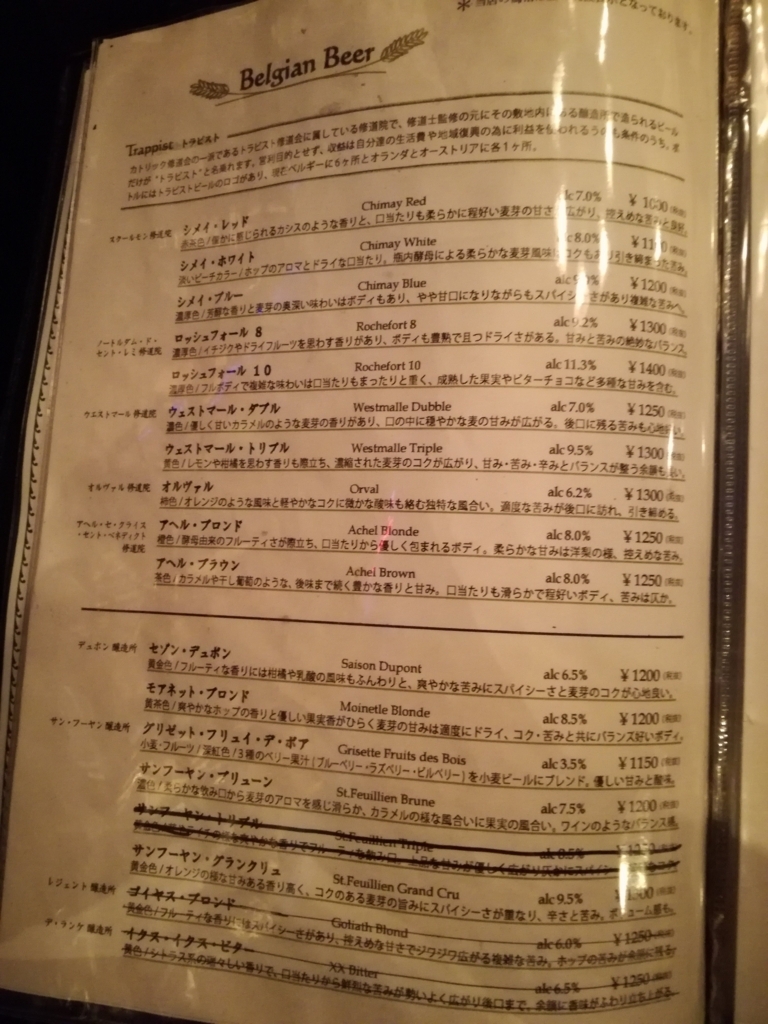 Belgian Beer
Trappist トラピスト
カトリック修道会の一派であるトラピスト修道会に属している修道院で、修道士監修の元にその敷地内にある醸造所で造られるビール
だけが"トラピスト"と名乗れます。営利目的とせず、収益は自分達の生活費や地域復興の為に利益を使われるうのも条件のうち。ボ
トルにはトラピストビールのロゴがあり、現在ベルギーに6ヶ所とオランダとオーストリアに各1ヶ所。
スクールモン修道院 シメイ・レッド Chimay Red alc 7.0%
僅かに感じられるカシスのような香りと、口当たりも柔らかに程好い麦芽の甘さ 広がり、控えめな苦みと
シメイ・ホワイト Chimay White alc 8.0%
淡いピーチカラー/ホップのアロマとドライな口当たり。瓶内酵母による柔らかな麦芽風味 コクもあり引き締まった苦み。
シメイ・ブルー Chimay Blue ¥1200
濃厚色/芳醇な香りと麦芽の奥深い味わいはボディもあり、やや甘口になりながらもスパイシーさがあり複雑な苦みへ。
ノートルダム・ド・セント・レミ修道院 ロッシュフォール 8 Rochefort 8 alc 9.2% ¥1300
濃厚色/イチジクやドライフルーツを思わす香りがあり、ボディも豊熟で且つドライさがある。甘みと苦みの絶妙なバランス。
ロッシュフォール 10 Rochefort 10 alc 11.3% ¥1400
濃厚色/フルボディで複雑な味わいは口当たりもまったりと重く、成熟した果実やビターチョコなど多種な甘みを含む。
ウエストマール修道院 ウェストマール・ダブル Westmalle Dubble alc 7.0% ¥1250
濃色/優しく甘いカラメルのような麦芽の香りがあり、口の中に穏やかな麦の甘みが広がる。後口に残る苦みも心地好い。
ウェストマール・トリプル Westmalle Triple alc 9.5% ¥1300
黄色/レモンや柑橘を思わす香りも際立ち、濃縮された麦芽のコクが広がり、甘み・苦み・辛みとバランスが整う余韻も長い。
オルヴァル修道院 オルヴァル Orval alc 6.2% ¥1300
橙色/オレンジのような風味と軽やかなコクに微かな酸味も絡む独特な風合い。適度な苦みが後口に訪れ、引き締める。
アヘル・セ・クライス・セント・ベネディクト修道院 アヘル・ブロンド Achel Blonde alc 8.0% ¥1250
橙色/酵母由来のフルーティさが際立ち、口当たりから優しく包まれるボディ。柔らかな甘みは洋梨の様、控えめな苦み。
アヘル・ブラウン Achel Brown alc 8.0% ¥1250
茶色/カラメルや干し葡萄のような、後味まで続く豊かな香りと甘み。口当たりも滑らかで程好いボディ、苦みは仄か。
デュポン醸造所 セゾン・デュポン Saison Dupont alc 6.5% ¥1200
黄金色/フルーティな香りには柑橘や乳酸の風味もふんわりと、爽やかな苦みにスパイシーさと麦芽のコクが心地良い。
モアネット・ブロンド Moinette Blonde alc 8.5% ¥1200
黄茶色/爽やかなホップの香りと優しい果実香がひらく麦芽の甘みは適度にドライ、コク・苦みと共にバランス好いボディ。
サン・フーヤン醸造所 グリゼット・フリュイ・デ・ボア Grisette Fruits des Bois alc 3.5% ¥1150
小麦・フルーツ/深紅色/3種のベリー果汁(ブルーベリー・ラズベリー・ビルベリー)を小麦ビールにブレンド。優しい甘みと酸味。
サンフーヤン・ブリューン St.Feuillien Brune alc 7.5% ¥1200
濃色/柔らかな飲み口から麦芽のアロマを感じ滑らか、カラメルの様な風合いに果実の風合い。ワインのようなバランス感。
サンフーヤン・トリプル St.Feuillien Triple alc 8.5% ¥1250
サンフーヤン・グランクリュ St.Feuillien Grand Cru alc 9.5%
黄金色/オレンジの様な甘みある香り高く、コクのある麦芽の旨みにスパイシーさが重なり、辛さと苦み。ボリューム感も。
レジェンド醸造所 ゴイヤス・ブロンド Goliath Blond alc 6.0% ¥1250
黄金色/フルーティな香りにはスパイシーさがあり、控えめな甘さでジワジワ広がる複雑な苦み。ホップの苦みが余韻に残る
デ・ランケ醸造所 イクス・イクス・ビター XX Bitter alc 6.5% ¥1250
黄色/シトラス系の瑞々しい香りで、口当たりから鮮烈な苦みが勢いよく広がり後口まで、余韻に香味がふわり立ち上がる。